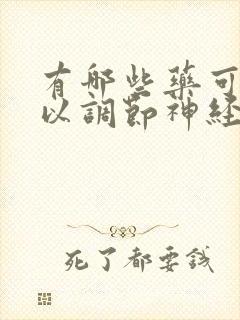 有哪些藥可
以調節神経
死了都要錢